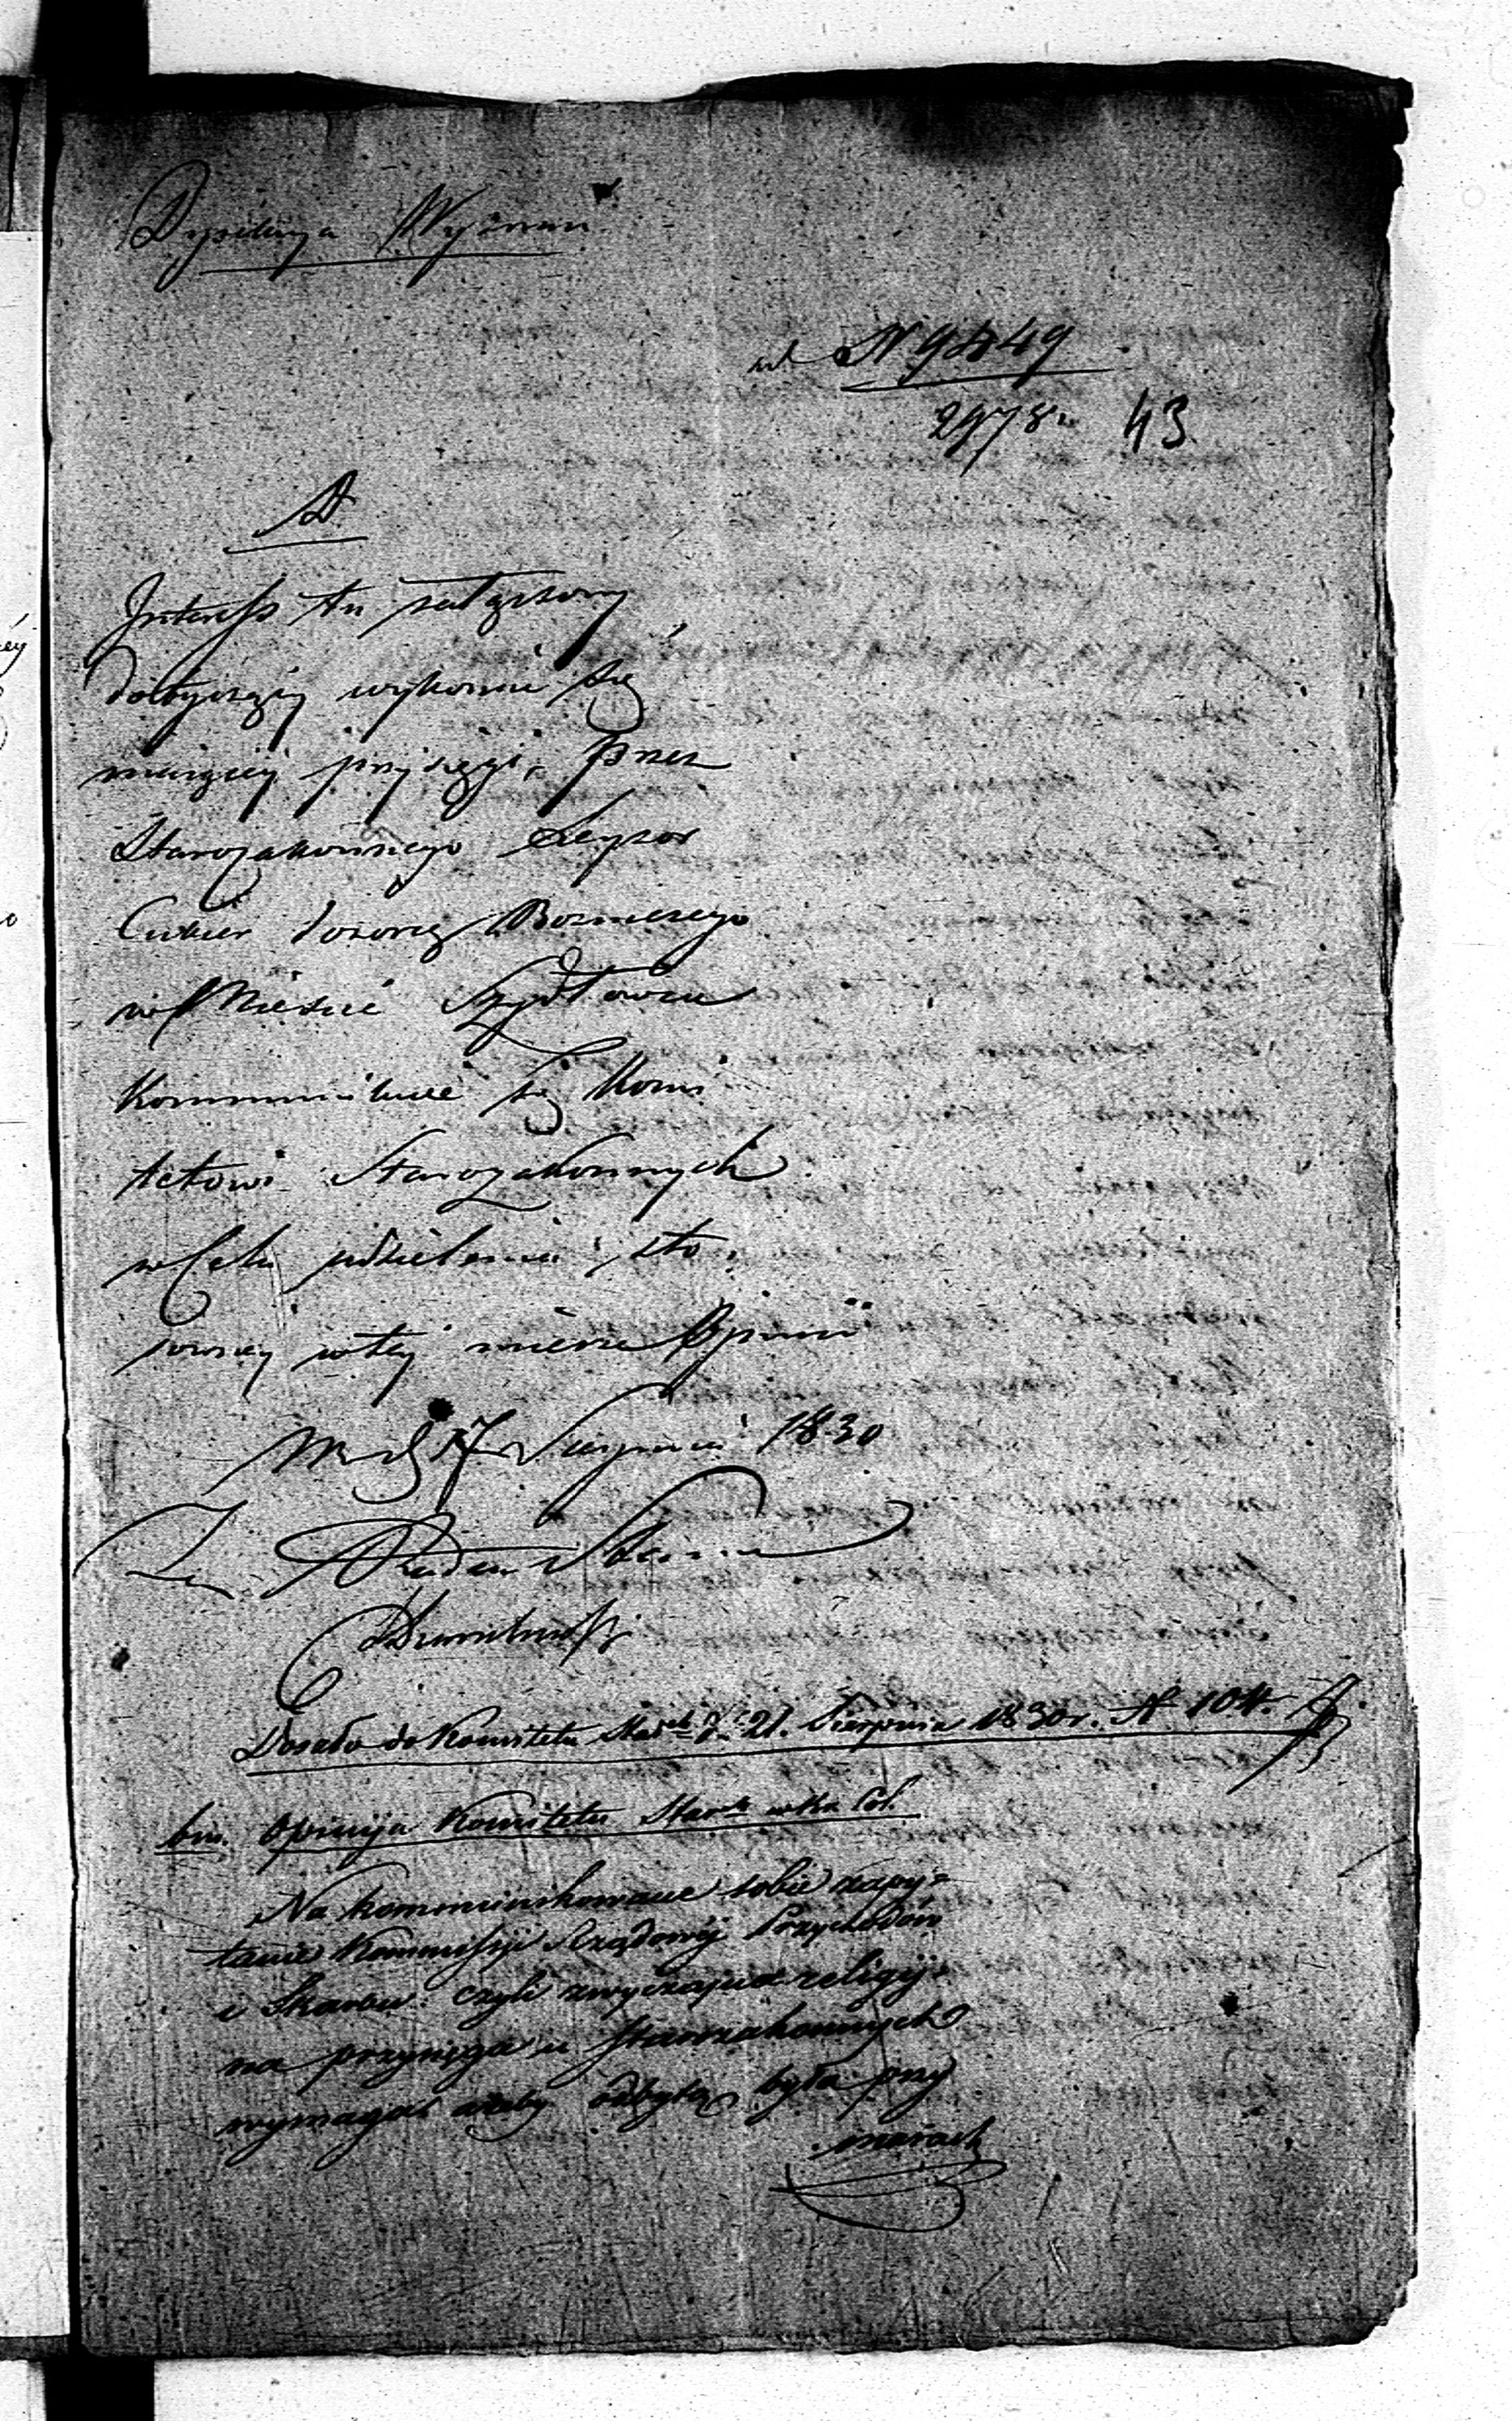 Dywizya Wyznań
ad N 9449
2978 43
A
Interess tu załączony
dotyczący wykonać się
mającej przysięgi, przez
Starozakonnego Leyzor
Cukier dozorcę Bożniczego
w Mieście Szydłowcu
kommunikuie się Komi
tetowi Starozakonnych
w Celu udzielenia sto,
sowney w tej mierze Opinii
W d 17 Sierpnia 1830
Za Radcę Stanu
Doszło do Komitetu Star. d. 21. Sierpnia 1830 r. N 104.
bm. Opinija Komitetu Star
Na kommunikowane sobie zapy=
tanie Kommissyi Rządowéy Przychodów
i Skarbu: czyli zwyczajna religij=
na przysięga u Starozakonnych
wymaga ażeby odbytą była przy
marach